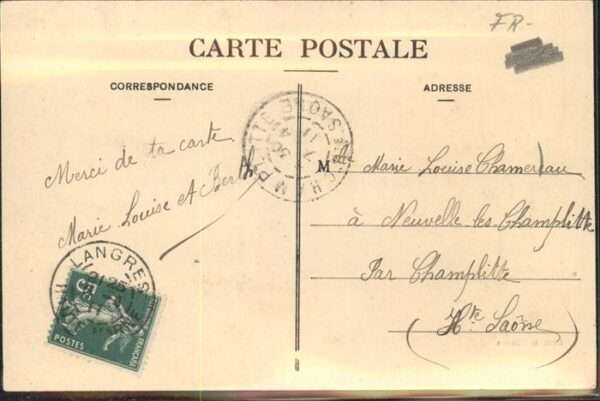 FR-
CARTE POSTALE
CORRESPONDANCE
ADRESSE
Merci de ta carte
Marie Louise et Berthe
Mlle Marie Louise Chamereau
à Neuvelle les Champlitte
Par Champlitte
(Hte Saône)
CHAMPLITTE
Hte SAONE
LANGRES
HAUTE MARNE
5
POSTES